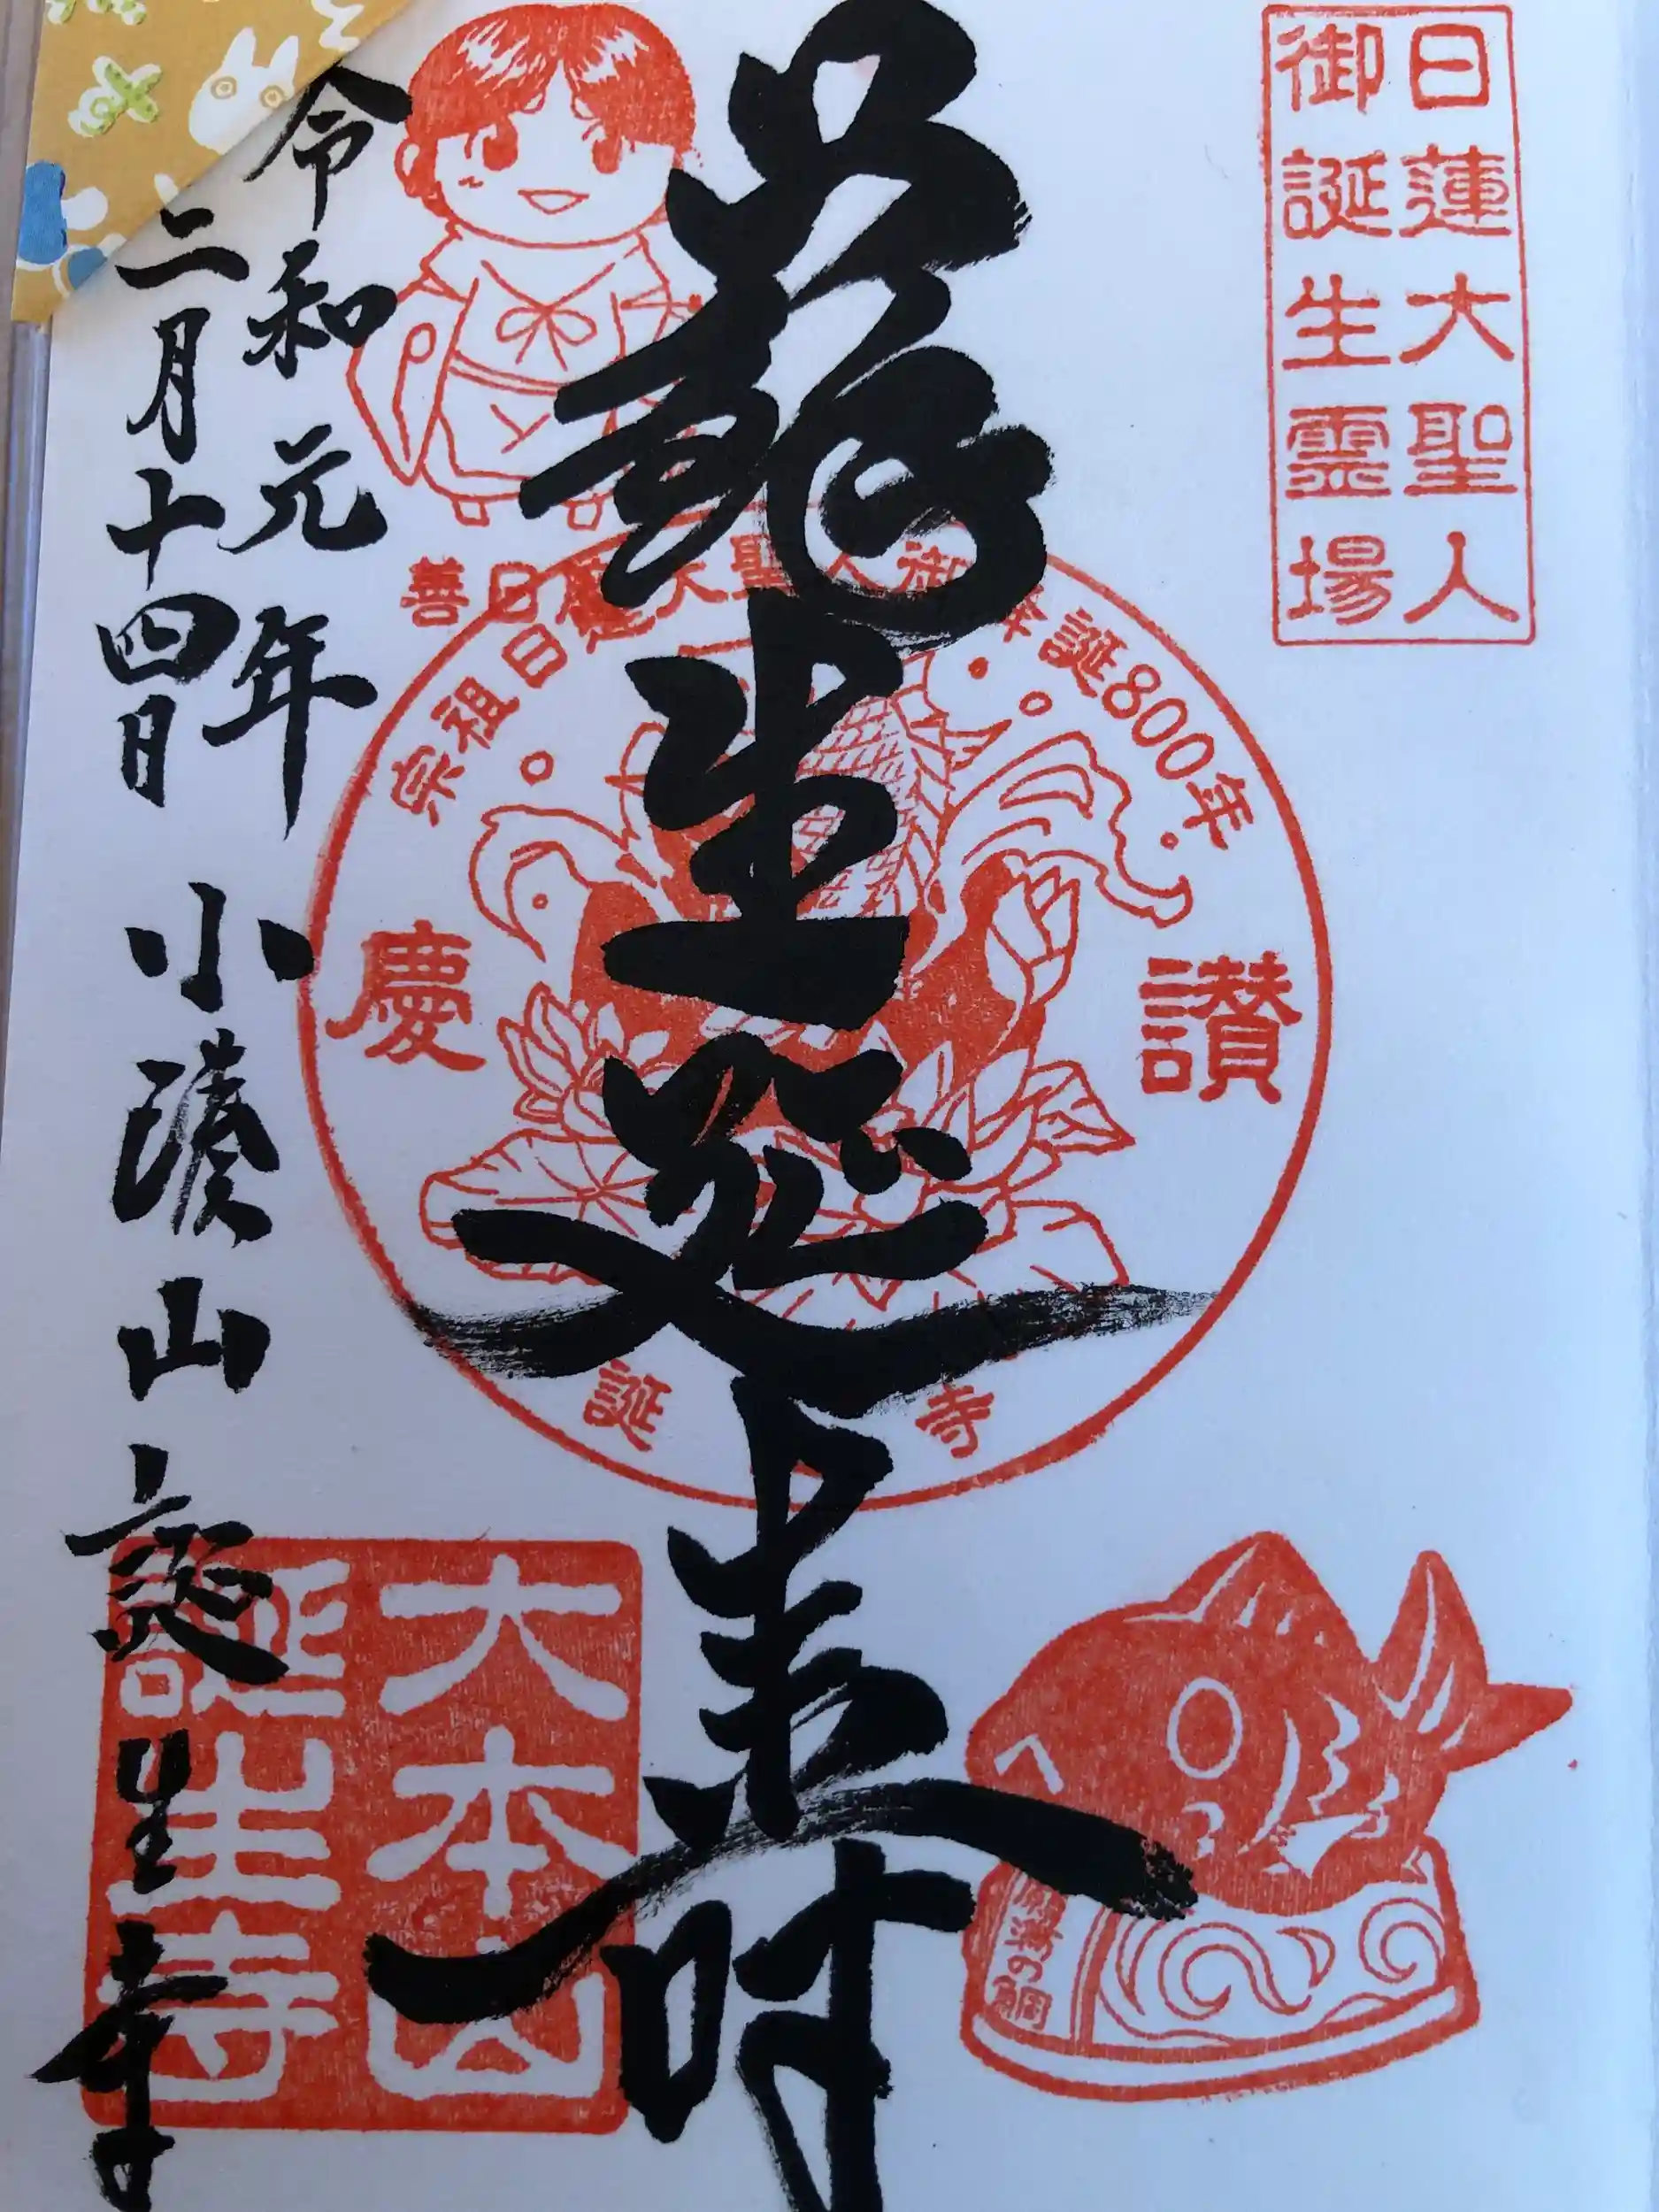 日蓮大聖人
御誕生霊場
善日麿
宗祖日蓮大聖人御降誕800年
慶讃
誕 寺
願満の鯛
大本山
誕生寺
令和元年
二月十四日
小湊山誕生寺